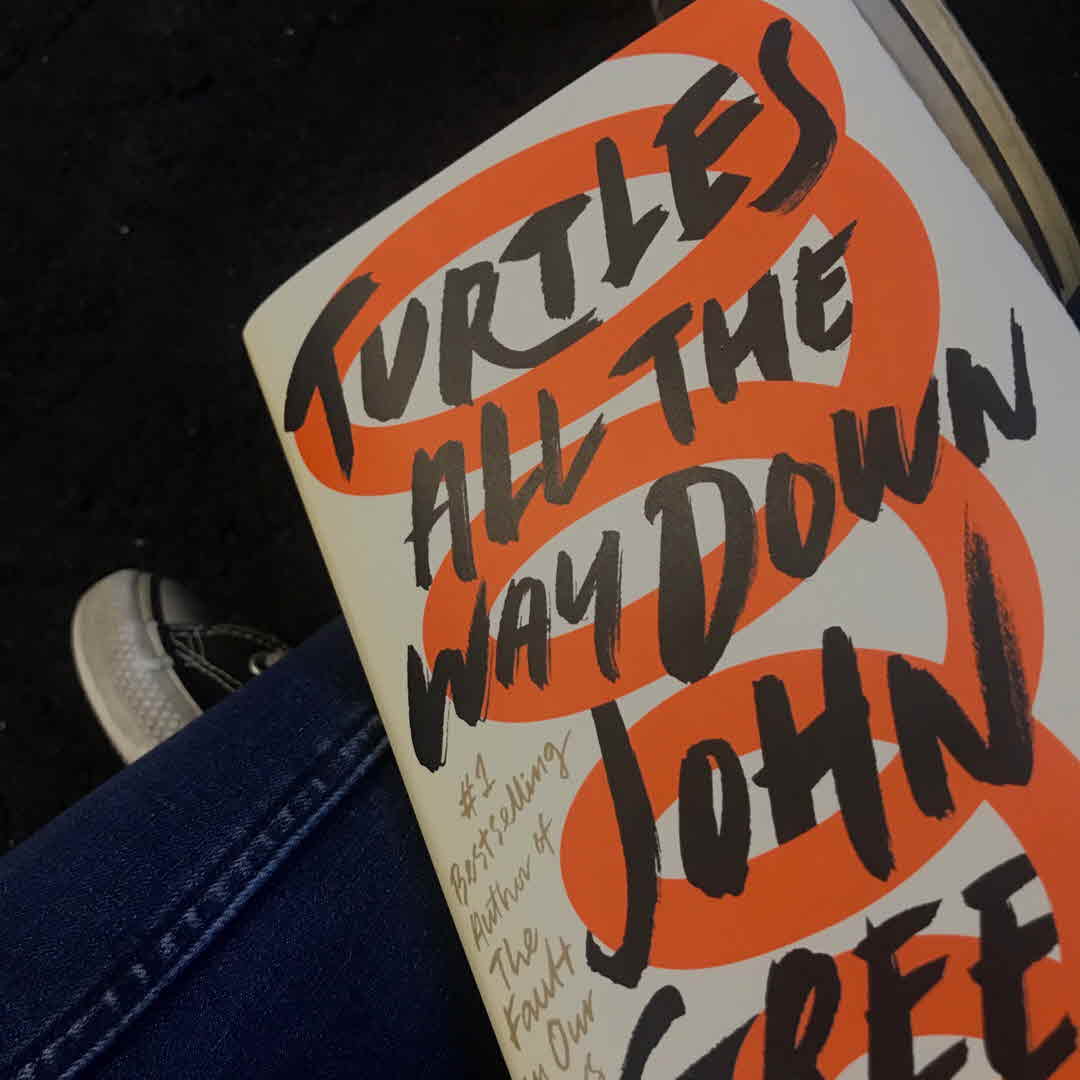 TURTLES
ALL THE
WAY DOWN
JOHN
GREE
#1
Bestselling
Author of
The
Fault
in Our